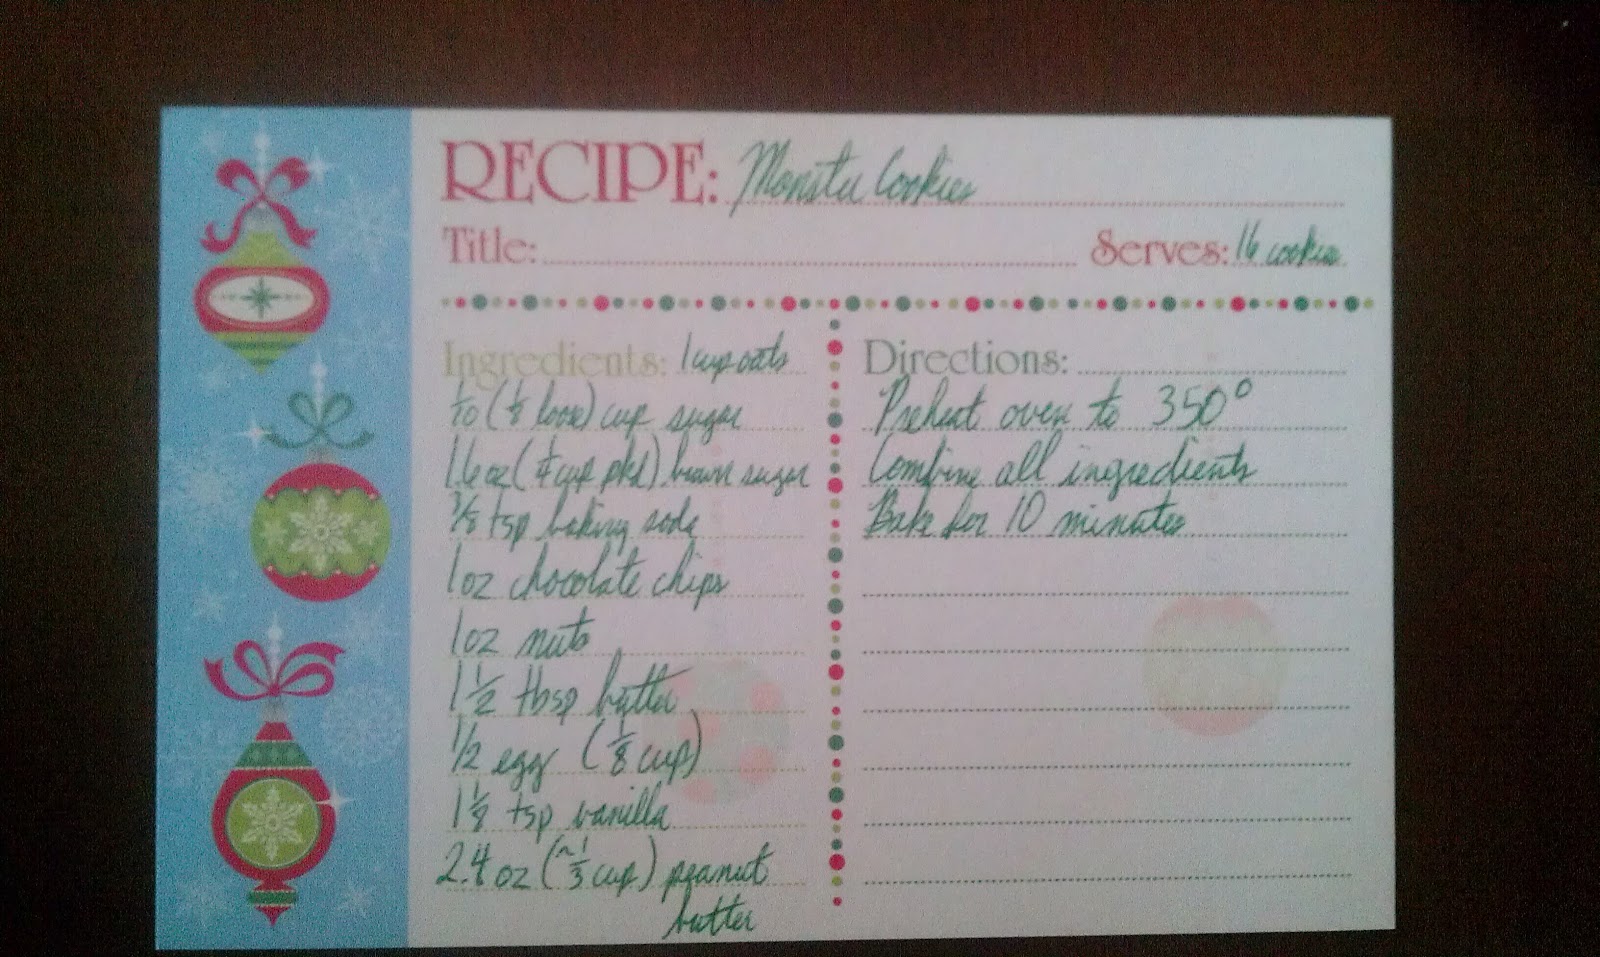 RECIPE: Monster Cookies
Title:
Serves: 16 cookies
Ingredients: 1 cup oats
1/10 (1/8 loose) cup sugar
1.6 oz (1/4 cup pkd) brown sugar
3/8 tsp baking soda
1 oz chocolate chips
1 oz nuts
1 1/2 tbsp butter
1/2 egg (1/8 cup)
1 1/8 tsp vanilla
2.4 oz (~1/3 cup) peanut
butter
Directions:
Preheat oven to 350°
Combine all ingredients
Bake for 10 minutes